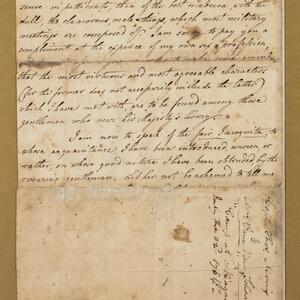 sense in petticoats, than of the best madeira, with the
dull, the clamorous male things, which most military
meetings are composed of. I am sorry to pay you a
compliment at the expence of my own sex & profession,
to make some amends
that the most virtuous and most agreeable characters
(for the former does not necessarily include the latter)
which I have met with, are to be found among those
gentlemen who wear his Majesty's livery.
I am now to speak of the fair Incognita, to
whose acquaintance I have been introduced unseen, or
rather, on whose good nature I have been obtruded by the
swearing gentleman. Let her not be ashamed to tell me